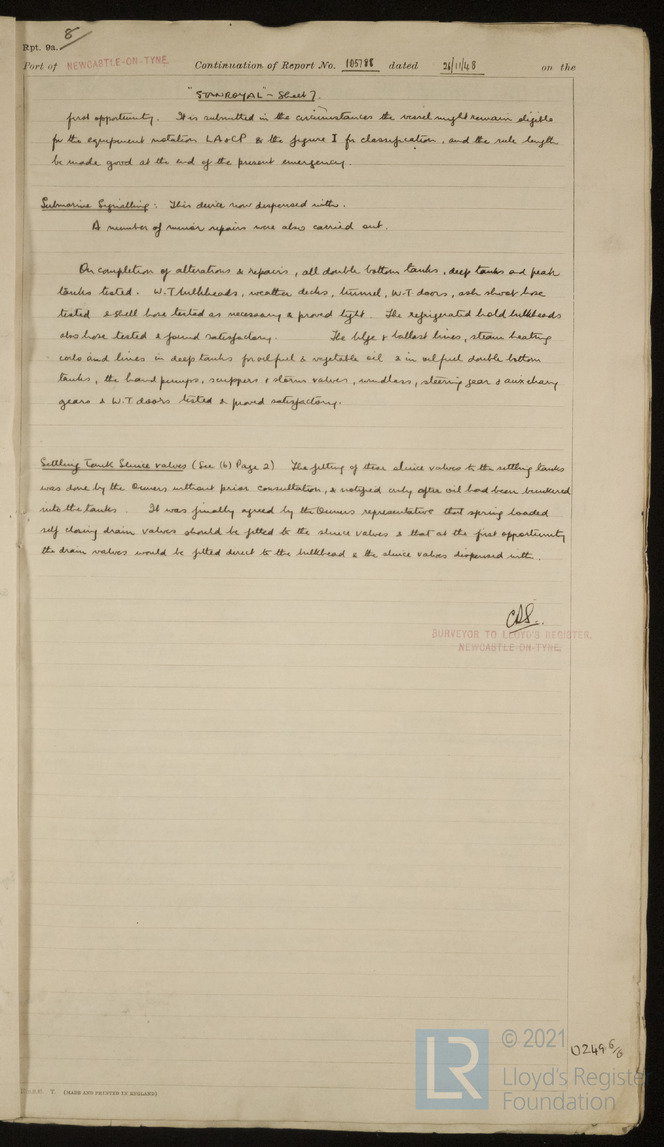 8
Rpt. 9a.
Port of NEWCASTLE-ON-TYNE. Continuation of Report No. 105788 dated 26/11/48 on the
"STANROYAL" - Sheet 7.
first opportunity. It is submitted in the circumstances the vessel might remain eligible
for the equipment notation LA&CP & the figure I for classification, and the rule length
be made good at the end of the present emergency.
Submarine Signalling: This device now dispensed with.
A number of minor repairs were also carried out.
On completion of alterations & repairs, all double bottom tanks, deep tanks and peak
tanks tested. W.T. bulkheads, weather decks, tunnel, W.T. doors, ash shoot hose
tested & shell hose tested as necessary & proved tight. The refrigerated hold bulkheads
also hose tested & found satisfactory. The bilge & ballast lines, steam heating
coils and lines in deep tanks for oil fuel & vegetable oil & in oil fuel double bottom
tanks, the hand pumps, scuppers & storm valves, windlass, steering gear & auxiliary
gears & W.T. doors tested & proved satisfactory.
Settling Tank Sluice Valves (See (b) Page 2) The fitting of these sluice valves to the settling tanks
was done by the Owners without prior consultation, & notified only after oil had been bunkered
into the tanks. It was finally agreed by the Owners representative that spring loaded
self closing drain valves should be fitted to the sluice valves & that at the first opportunity
the drain valves would be fitted direct to the bulkhead & the sluice valves dispensed with.
SURVEYOR TO LLOYD'S REGISTER,
NEWCASTLE-ON-TYNE.
© 2021
LR
Lloyd's Register
Foundation
0249 6/8
T. (MADE AND PRINTED IN ENGLAND)